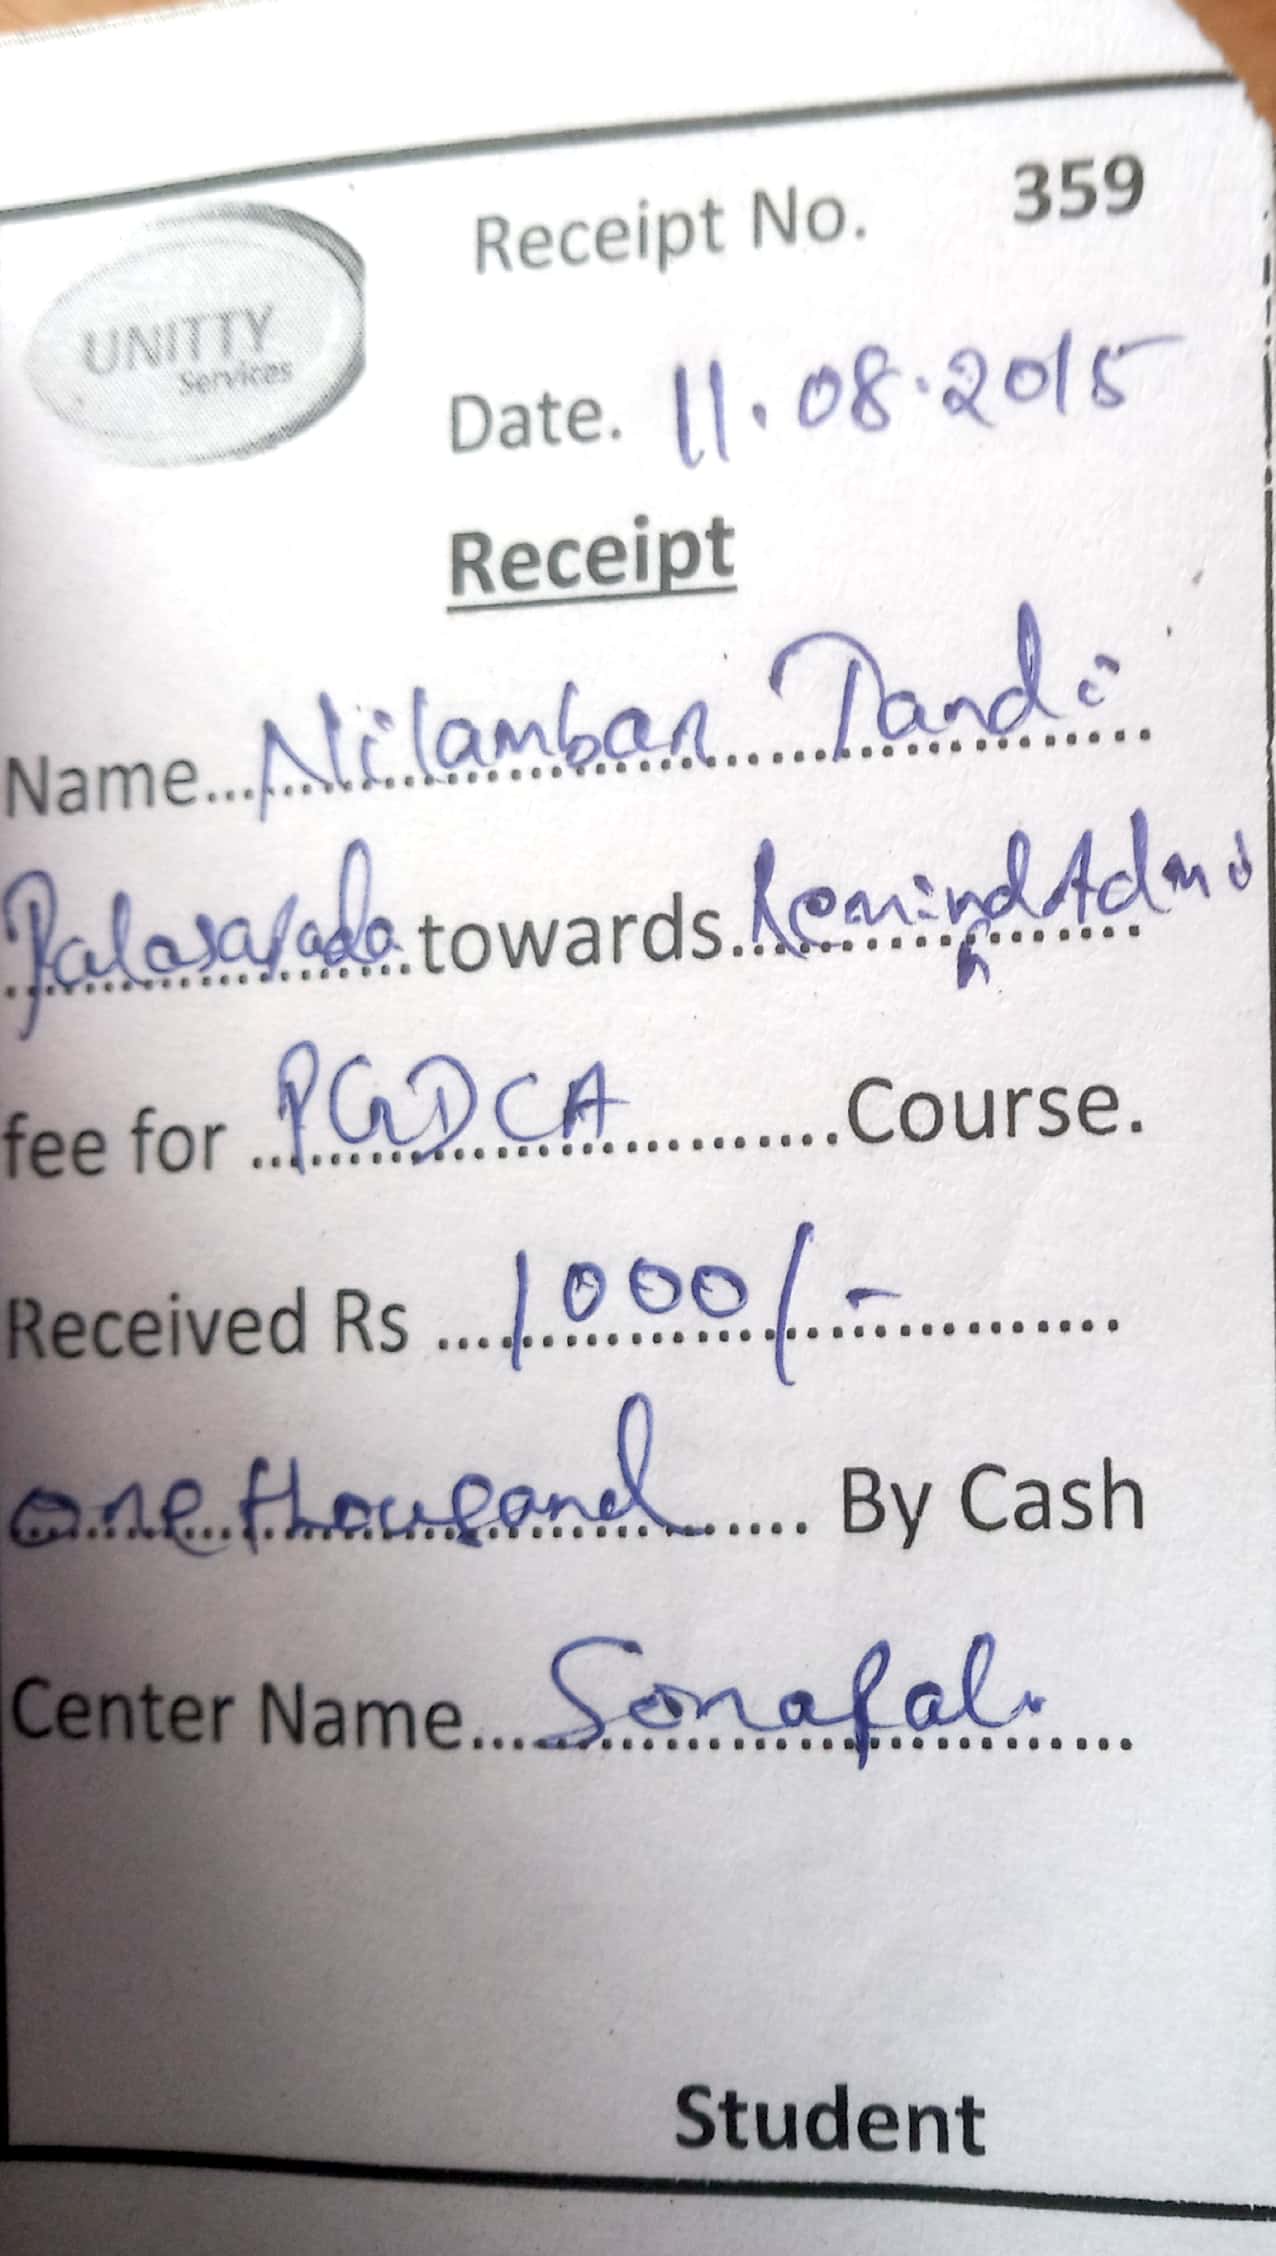 Receipt No. 359
UNITTY
Services
Date. 11.08.2015
Receipt
Name...Nilambar Tandi
Palasapada towards. Remind Admi
fee for ...PGDCA...Course.
Received Rs ....1000/-....
one thousand.... By Cash
Center Name....Sonapali
Student